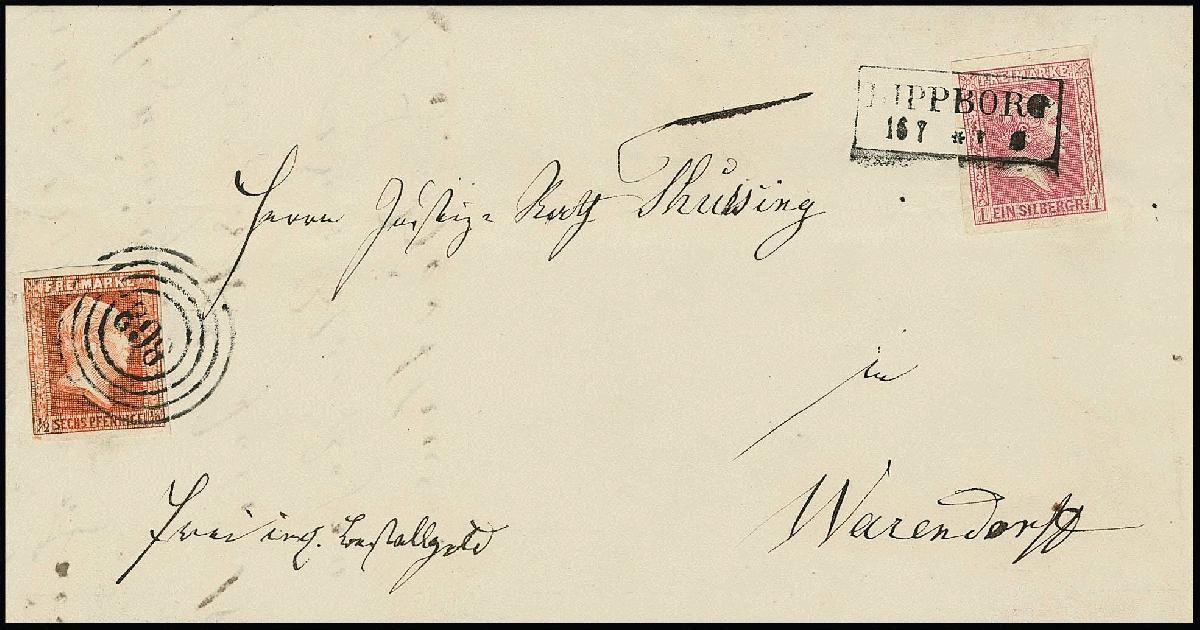 FREIMARKE
LIPPBORG
16 7 * 7
1 EIN SILBERGR. 1
Herrn Justiz-Rath Thüssing
FREIMARKE
½ SECHS PFENNINGE ½
in
Warendorff
Frei incl. Bestellgeld